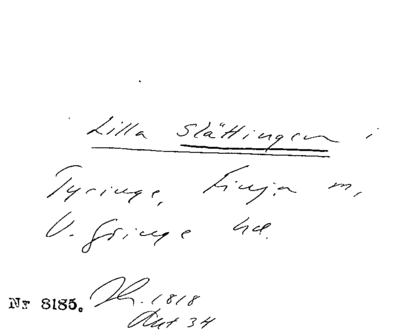 Lilla Slättingen i
Tyringe, Finja m,
V. Göinge hd.
Nr 8185. 1818
Akt 34